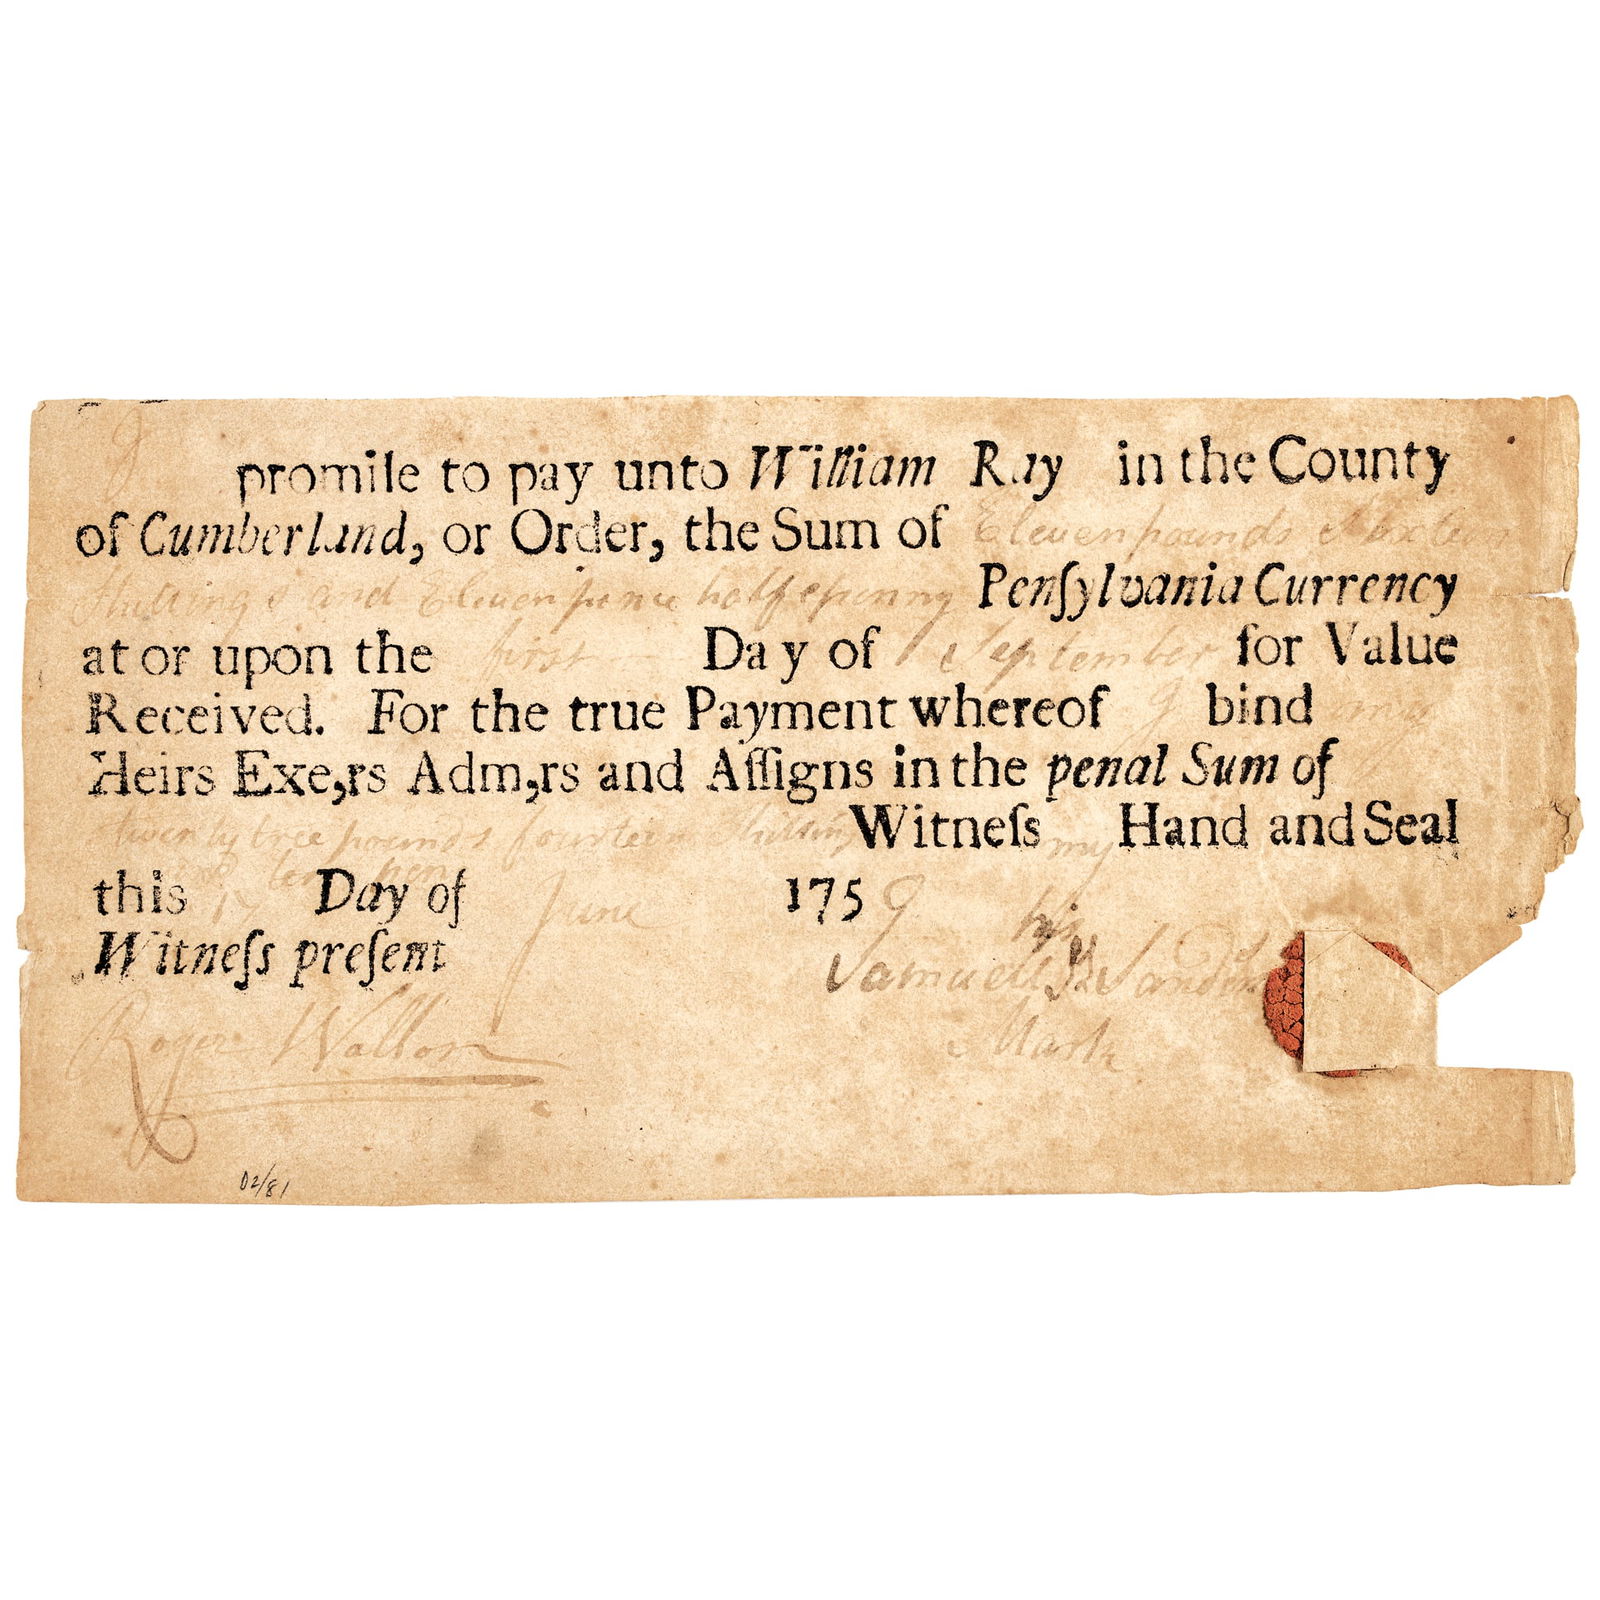 I
promiſe to pay unto William Ray in the County
of Cumberland, or Order, the Sum of Eleven pounds
Shillings and Eleven pence halfe penny Penſylvania Currency
at or upon the first Day of September for Value
Received. For the true Payment whereof I bind my
Heirs Exe,rs Adm,rs and Aſſigns in the penal Sum of
twenty tree pounds fourteen Witneſs my Hand and Seal
ten pen
this 17 Day of June 1759 his
Witneſs preſent Samuell Sanders
Roger Walton Mark
02/81